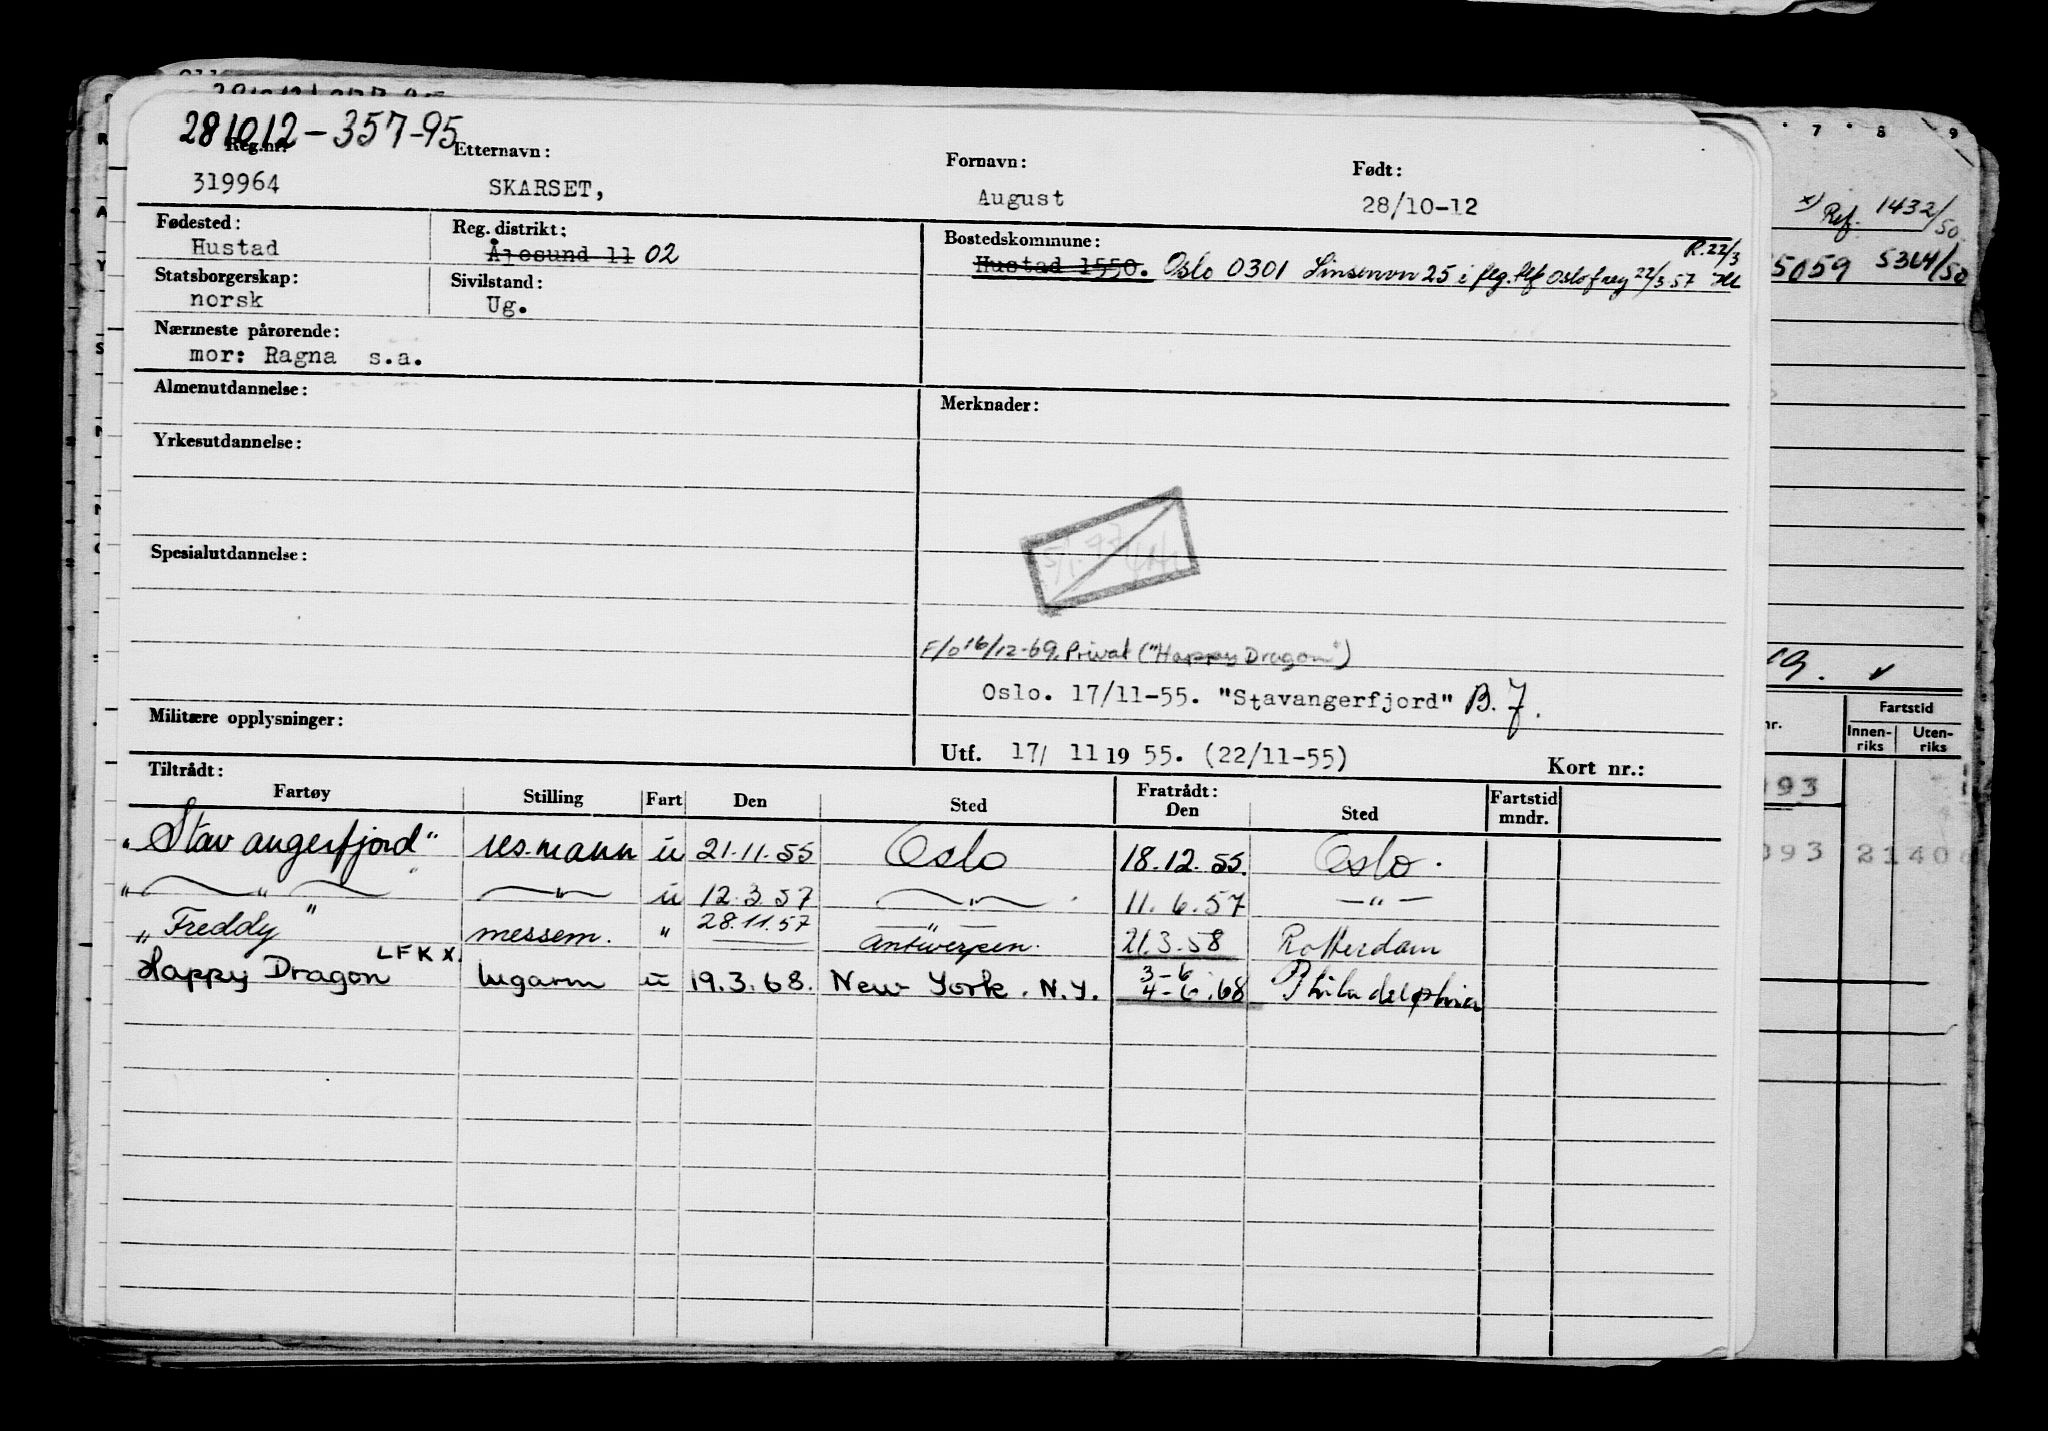 281012-357-95
Reg.nr. Etternavn: Fornavn: Født:
319964 SKARSET, August 28/10-12
Fødested: Reg. distrikt: Bostedskommune: R.22/3
Hustad Ålesund 11 02 Hustad 1550. Oslo 0301
Statsborgerskap: Sivilstand:
norsk Ug.
Nærmeste pårørende:
mor: Ragna s.a.
Almenutdannelse: Merknader:
Yrkesutdannelse:
Spesialutdannelse:
F/o 16/12-69. Privat ("Happy Dragon")
Oslo. 17/11-55. "Stavangerfjord" B.J.
Militære opplysninger:
Utf. 17/ 11 19 55. (22/11-55) Kort nr.:
Tiltrådt: Fratrådt:
Fartøy Stilling Fart Den Sted Den Sted Fartstid mndr.
"Stavangerfjord" res.mann u 21.11.55 Oslo 18.12.55. Oslo.
" " " u 12.3.57 " 11.6.57 - " -
"Freddy" messem. " 28.11.57 Antwerpen. 21.3.58 Rotterdam
LFKX
Happy Dragon lugarm u 19.3.68. New York. N.Y. 3-6 4-6.68 Philadelphia
7 8 9
x) Ref. 1432/50
5059 5364/50
19.
nr. Fartstid
Innen-riks Uten-riks
93
093 2140